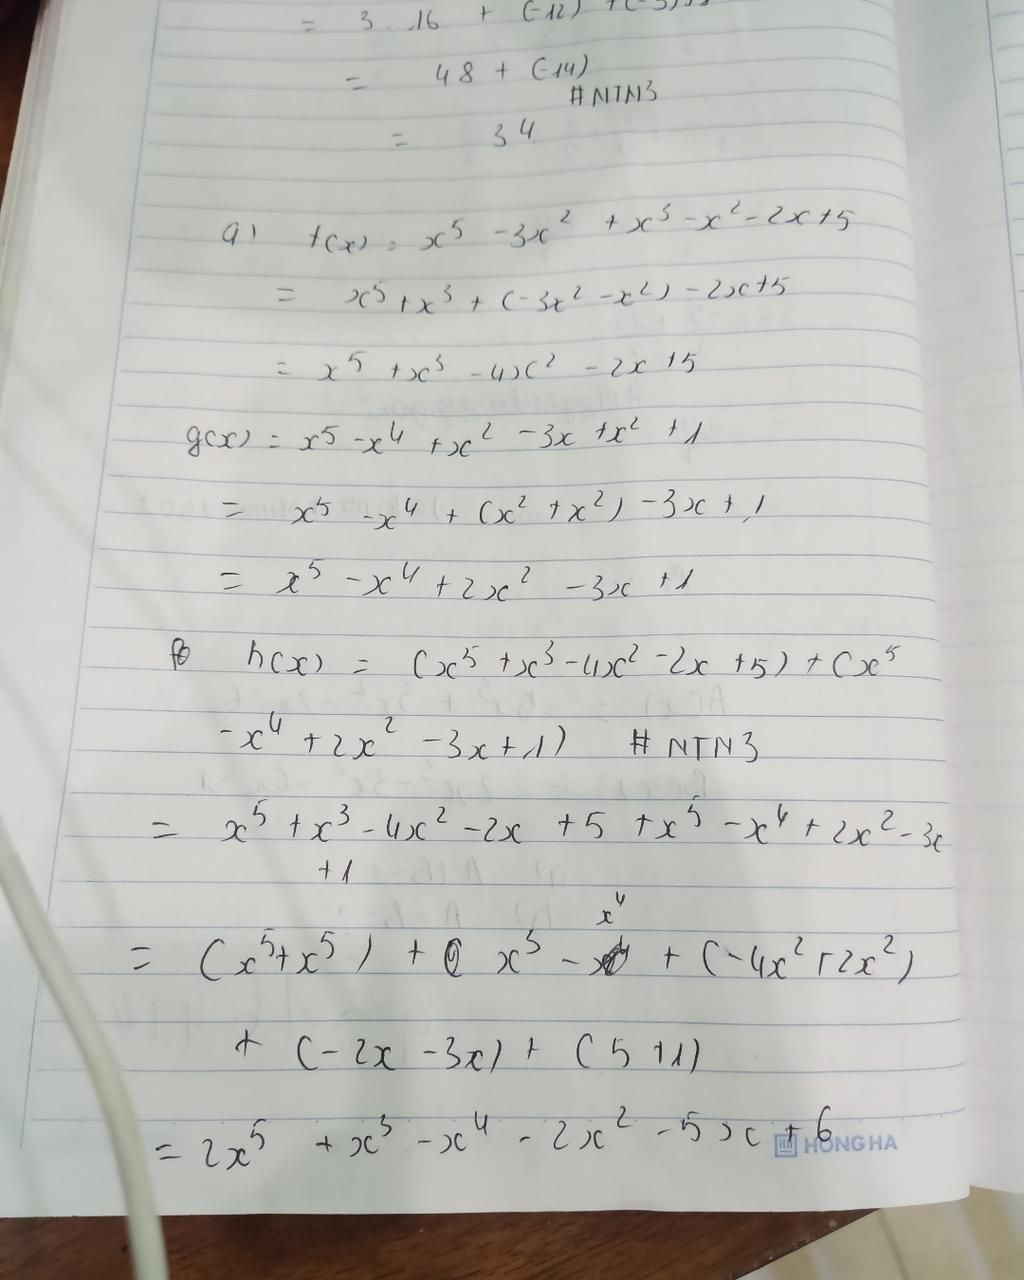 = 3 . 16 + (-12) + (-3)
= 48 + (-14)
#NTN3
= 34
a) f(x) = x⁵ - 3x² + x³ - x² - 2x + 5
= x⁵ + x³ + (-3x² - x²) - 2x + 5
= x⁵ + x³ - 4x² - 2x + 5
g(x) = x⁵ - x⁴ + x² - 3x + x² + 1
= x⁵ - x⁴ + (x² + x²) - 3x + 1
= x⁵ - x⁴ + 2x² - 3x + 1
h(x) = (x⁵ + x³ - 4x² - 2x + 5) + (x⁵
- x⁴ + 2x² - 3x + 1) # NTN3
= x⁵ + x³ - 4x² - 2x + 5 + x⁵ - x⁴ + 2x² - 3x
+ 1
= (x⁵ + x⁵) + x³ - x⁴ + (-4x² + 2x²)
+ (-2x - 3x) + (5 + 1)
= 2x⁵ + x³ - x⁴ - 2x² - 5x + 6
HONG HA